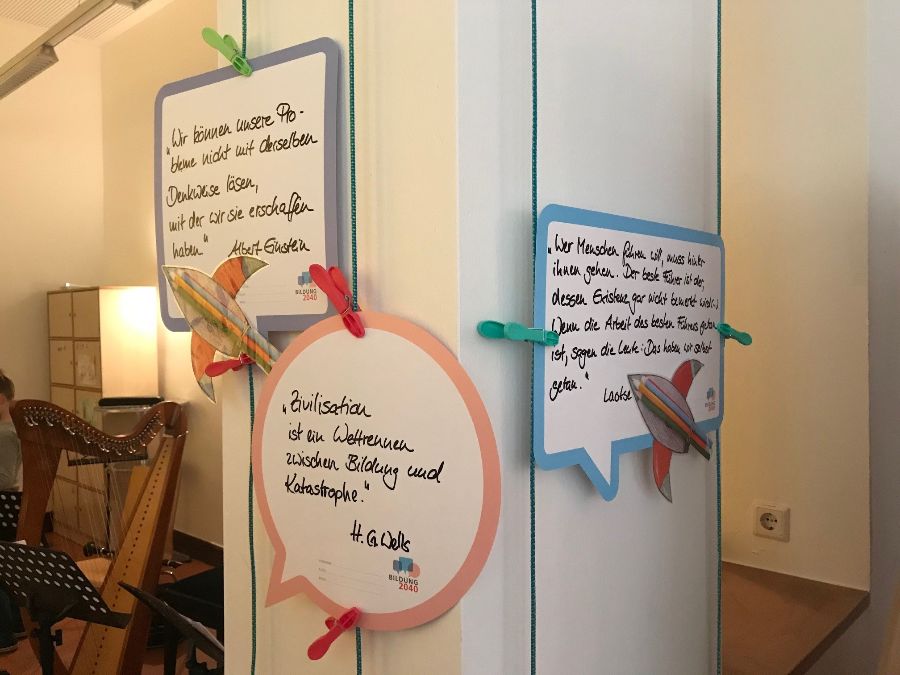 „Wir können unsere Pro-
bleme nicht mit derselben
Denkweise lösen,
mit der wir sie erschaffen
haben"
Albert Einstein
BILDUNG
2040
„Zivilisation
ist ein Wettrennen
zwischen Bildung und
Katastrophe."
H. G. Wells
BILDUNG
2040
„Wer Menschen führen will, muss hinter
ihnen gehen. Der beste Führer ist der,
dessen Existenz gar nicht bemerkt wird (...)
Wenn die Arbeit des besten Führers getan
ist, sagen die Leute: Das haben wir selbst
getan."
Laotse
BILDUNG
2040